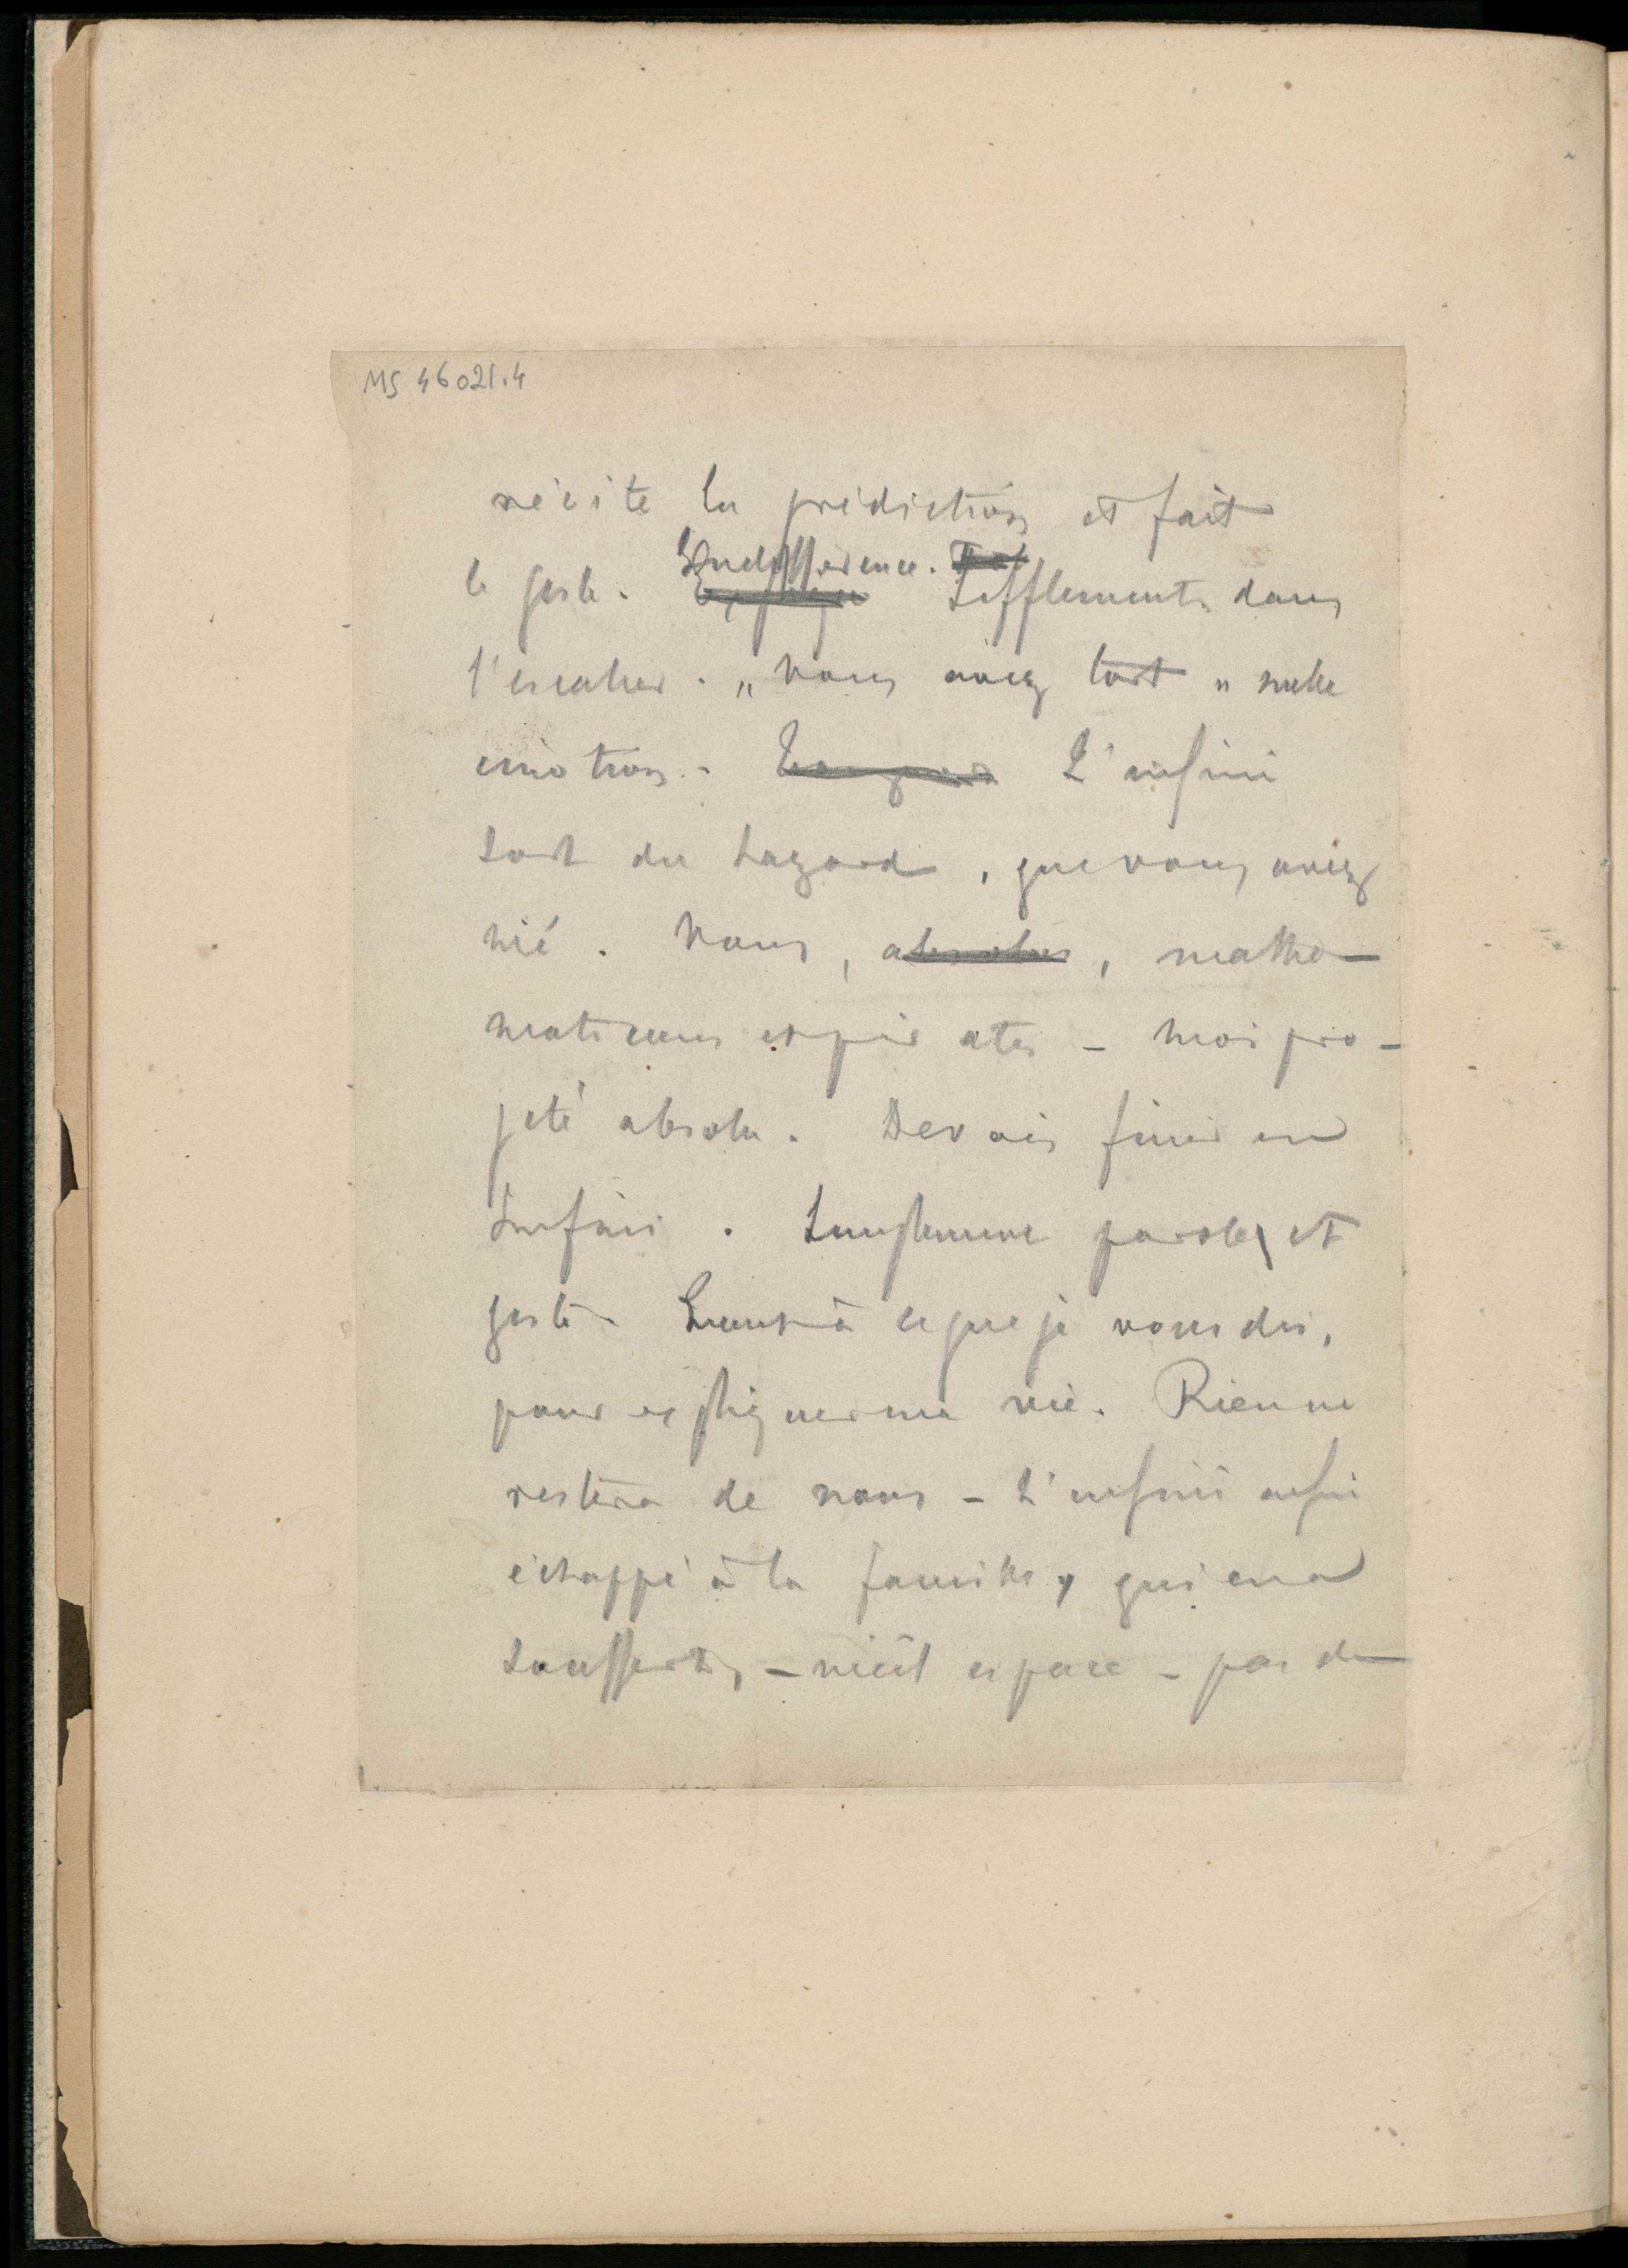 MS 46021.4
récite la prédiction et fait
Indifférence.
le geste. Sifflements dans
l'escalier. „ Vous avez tort „ nulle
émotion. L'infini
sort du hazard, que vous avez
nié. Vous, absolus, mathé-
maticiens expirâtes - moi pro-
jeté absolu. Devais finir en
Infini. Simplement parole et
geste. Quant à ce que je vous dis,
pour expliquer ma vie. Rien ne
restera de vous - L'infini enfin
échappe à la famille, qui en a
souffert, - vieil espace - pas de